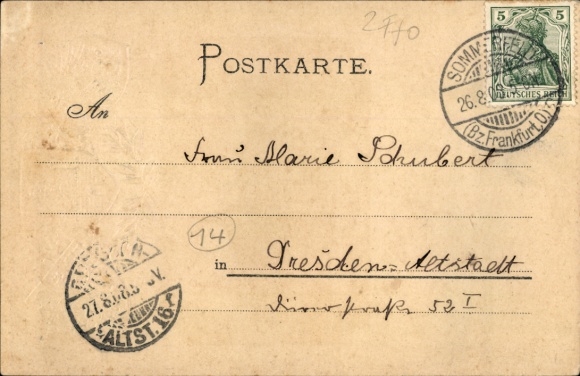 2770
5 5
DEUTSCHES REICH
SOMMERFELD
26.8.03
(Bz. Frankfurt, O.)
POSTKARTE.
An
Frau Marie Schubert
14
in Dresden-Altstadt
52 I
DRESDEN-
27.8.03
ALTST. 16 r